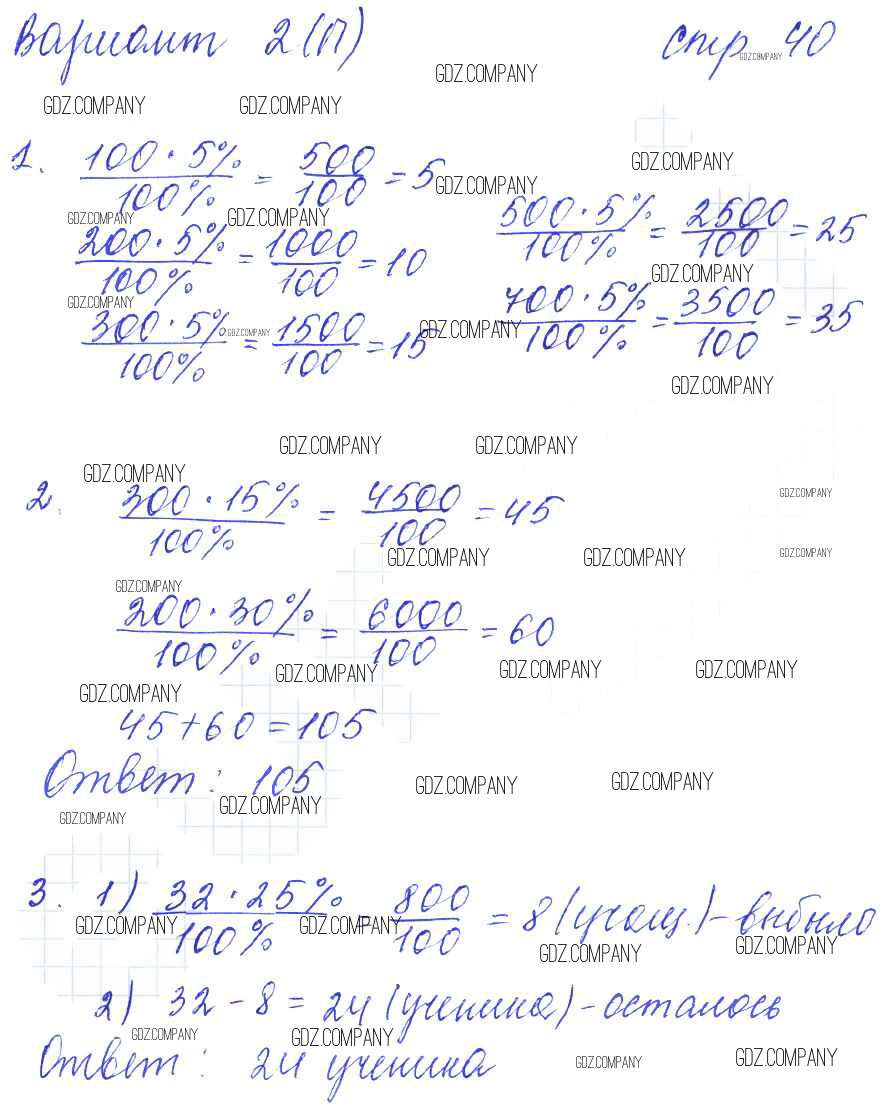 Вариант 2(П) стр 40
GDZ.COMPANY
GDZ.COMPANY GDZ.COMPANY GDZ.COMPANY
1. 100·5%/100% = 500/100 = 5
GDZ.COMPANY
GDZ.COMPANY
GDZ.COMPANY GDZ.COMPANY
500·5%/100% = 2500/100 = 25
200·5%/100% = 1000/100 = 10
GDZ.COMPANY
GDZ.COMPANY
700·5%/100% = 3500/100 = 35
300·5%/100% = 1500/100 = 15
GDZ.COMPANY GDZ.COMPANY
GDZ.COMPANY
GDZ.COMPANY GDZ.COMPANY
GDZ.COMPANY
GDZ.COMPANY
2. 300·15%/100% = 4500/100 = 45
GDZ.COMPANY GDZ.COMPANY GDZ.COMPANY
GDZ.COMPANY
200·30%/100% = 6000/100 = 60
GDZ.COMPANY GDZ.COMPANY GDZ.COMPANY
GDZ.COMPANY
45+60=105
Ответ: 105
GDZ.COMPANY GDZ.COMPANY
GDZ.COMPANY
GDZ.COMPANY
3. 1) 32·25%/100% = 800/100 = 8 (учащ.) - выбыло
GDZ.COMPANY GDZ.COMPANY
GDZ.COMPANY GDZ.COMPANY
2) 32-8=24 (ученика) - осталось
GDZ.COMPANY GDZ.COMPANY
Ответ: 24 ученика
GDZ.COMPANY GDZ.COMPANY